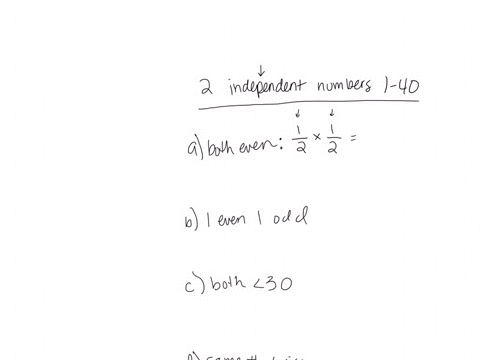 2 independent numbers 1-40
a) both even: 1/2 × 1/2 =
b) 1 even 1 odd
c) both <30